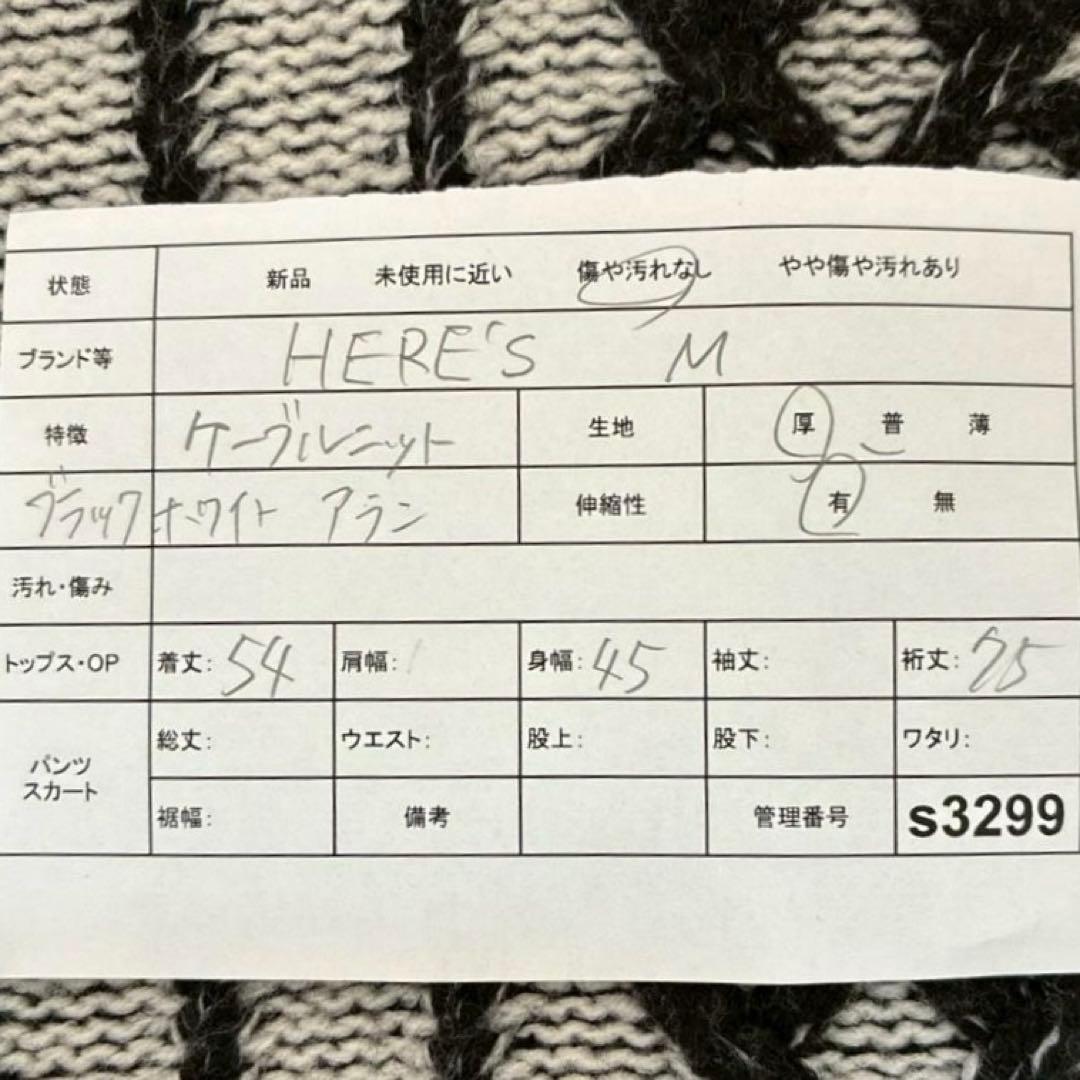 状態 新品 未使用に近い 傷や汚れなし やや傷や汚れあり
ブランド等 HERE'S M
特徴 ケーブルニット 生地 厚 普 薄
ブラックホワイト アラン 伸縮性 有 無
汚れ・傷み
トップス・OP 着丈: 54 肩幅: 身幅: 45 袖丈: 裄丈: 75
パンツ スカート 総丈: ウエスト: 股上: 股下: ワタリ:
裾幅: 備考 管理番号 s3299